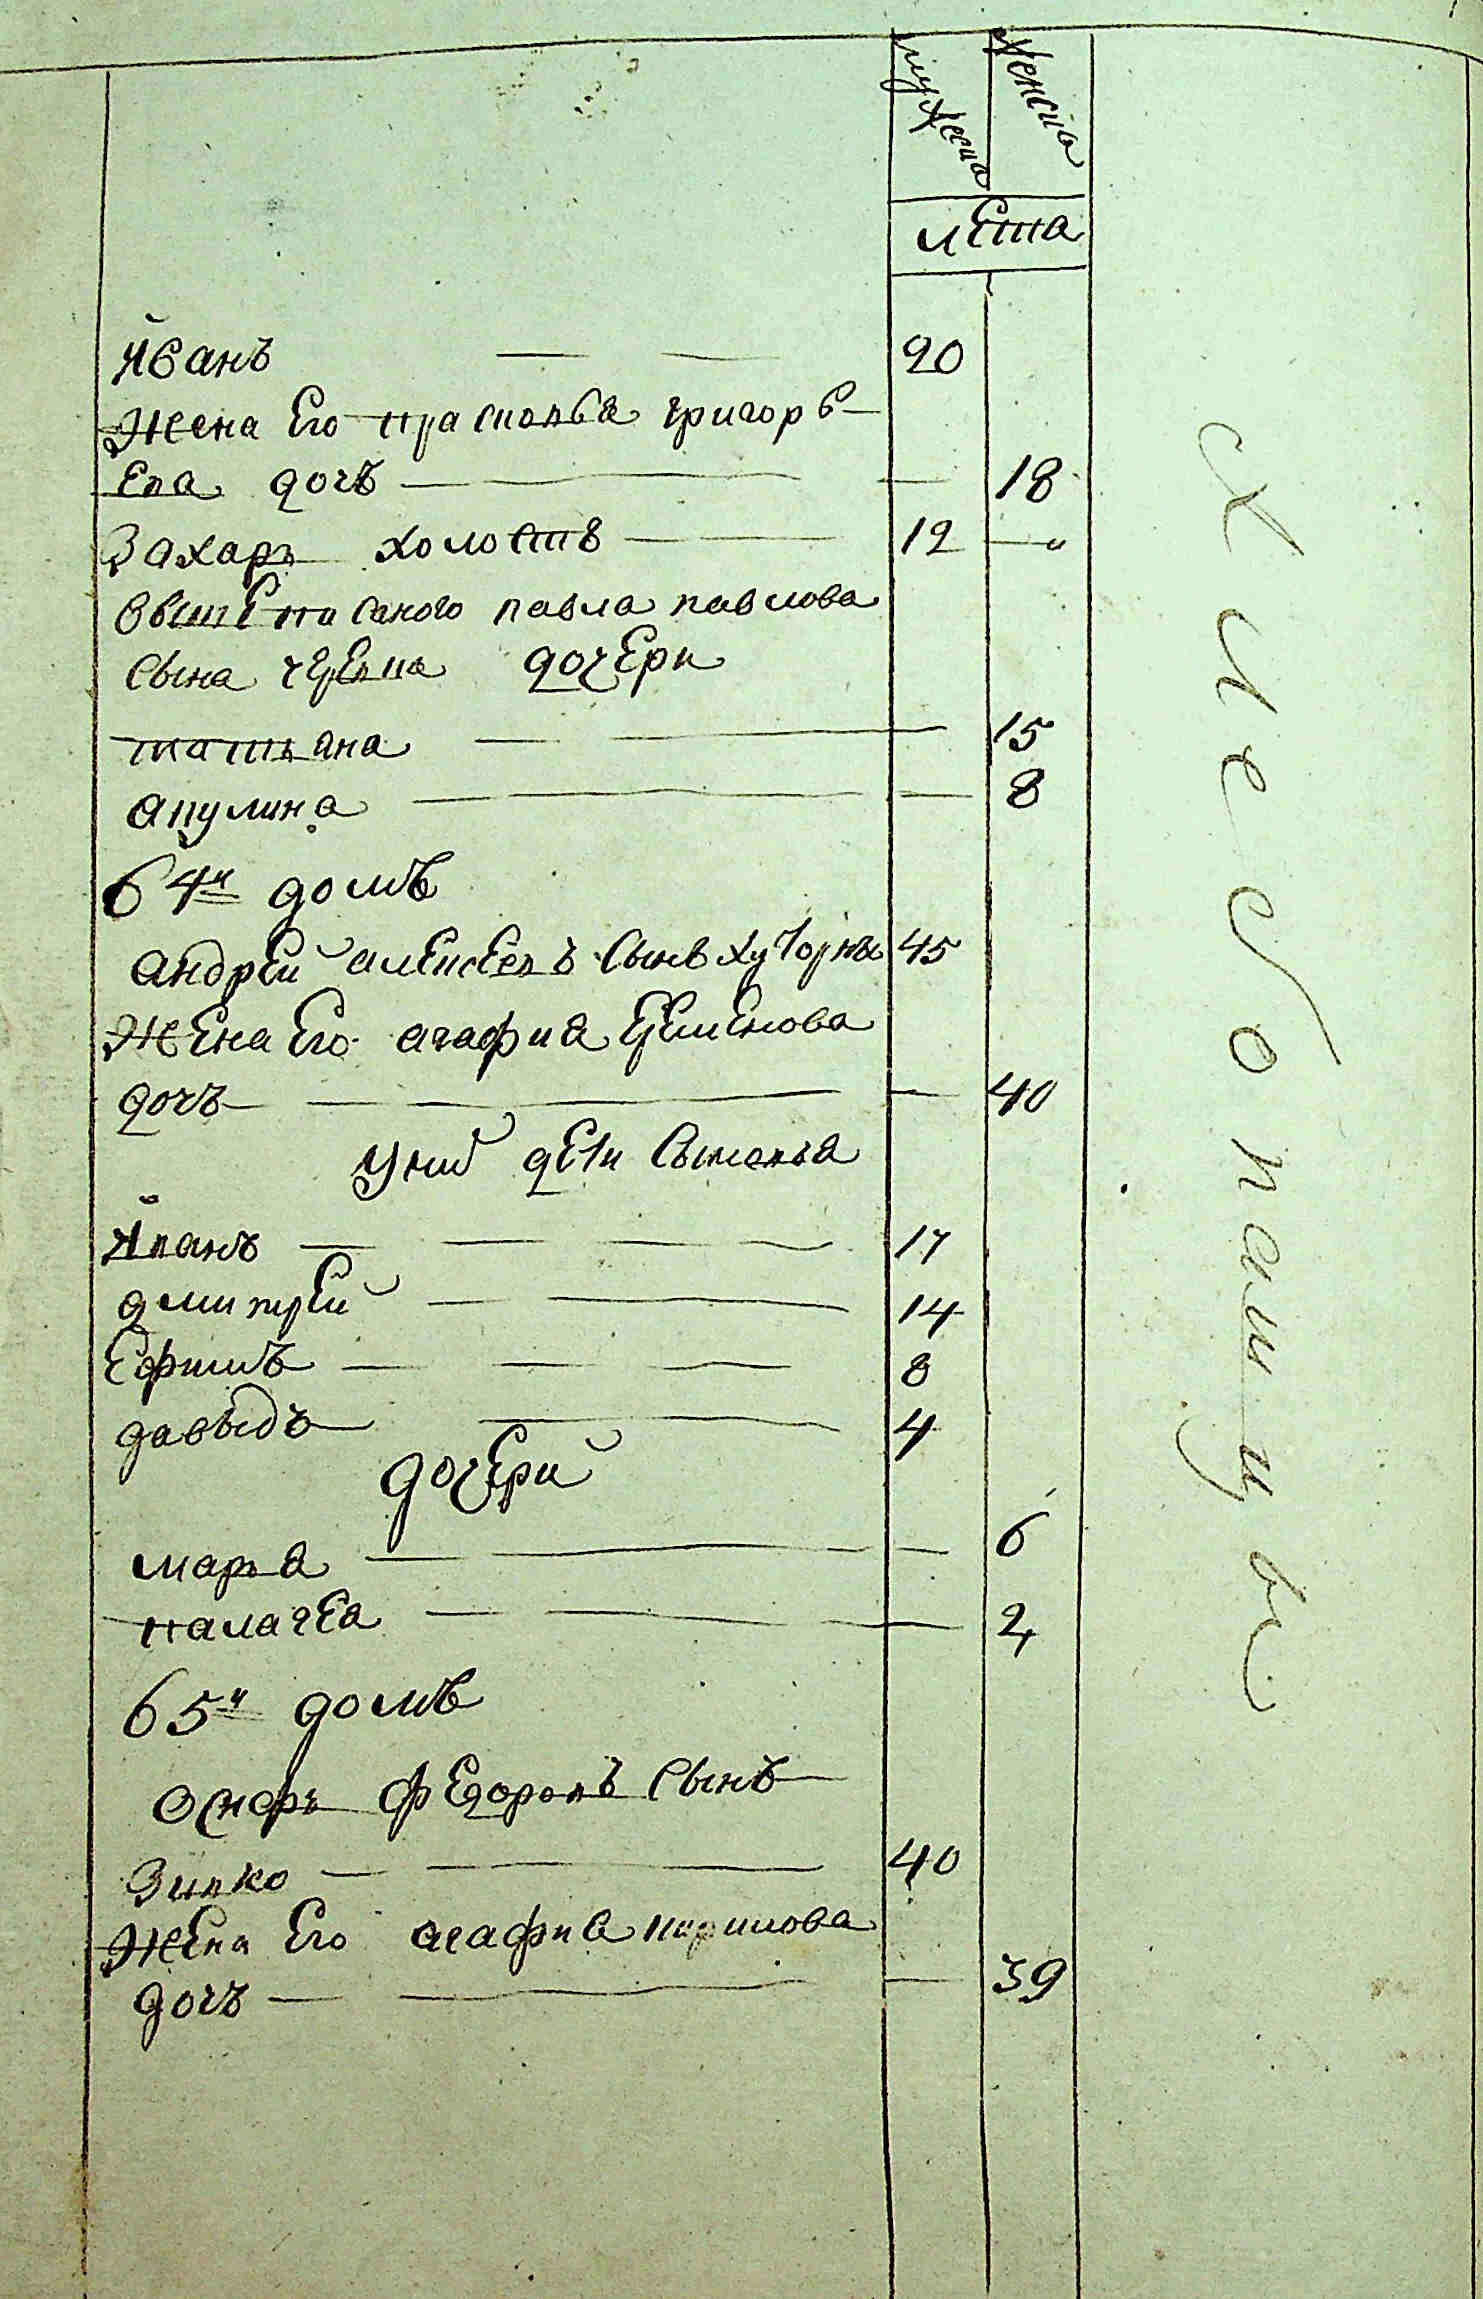 мужеска
женска
лета
Иванъ 20
Жена Его прасковьа григорь
Ева дочъ 18
Захаръ холостъ 12
Овышеписаного павла павлова
сына дочери
татьана 15
акулина 8
64й домъ
андрей алексеевъ сынъ 45
Жена Его агафиа Еременова
дочъ 40
уних дети сыновьа
Иванъ 17
дмитрей 14
Ефимъ 8
давыдъ 4
дочери
марьа 6
палагеа 2
65й домъ
Осифъ федоровъ сынъ
Зинко 40
Жена Его агафиа кирилова
дочъ 39
хлебопашцы